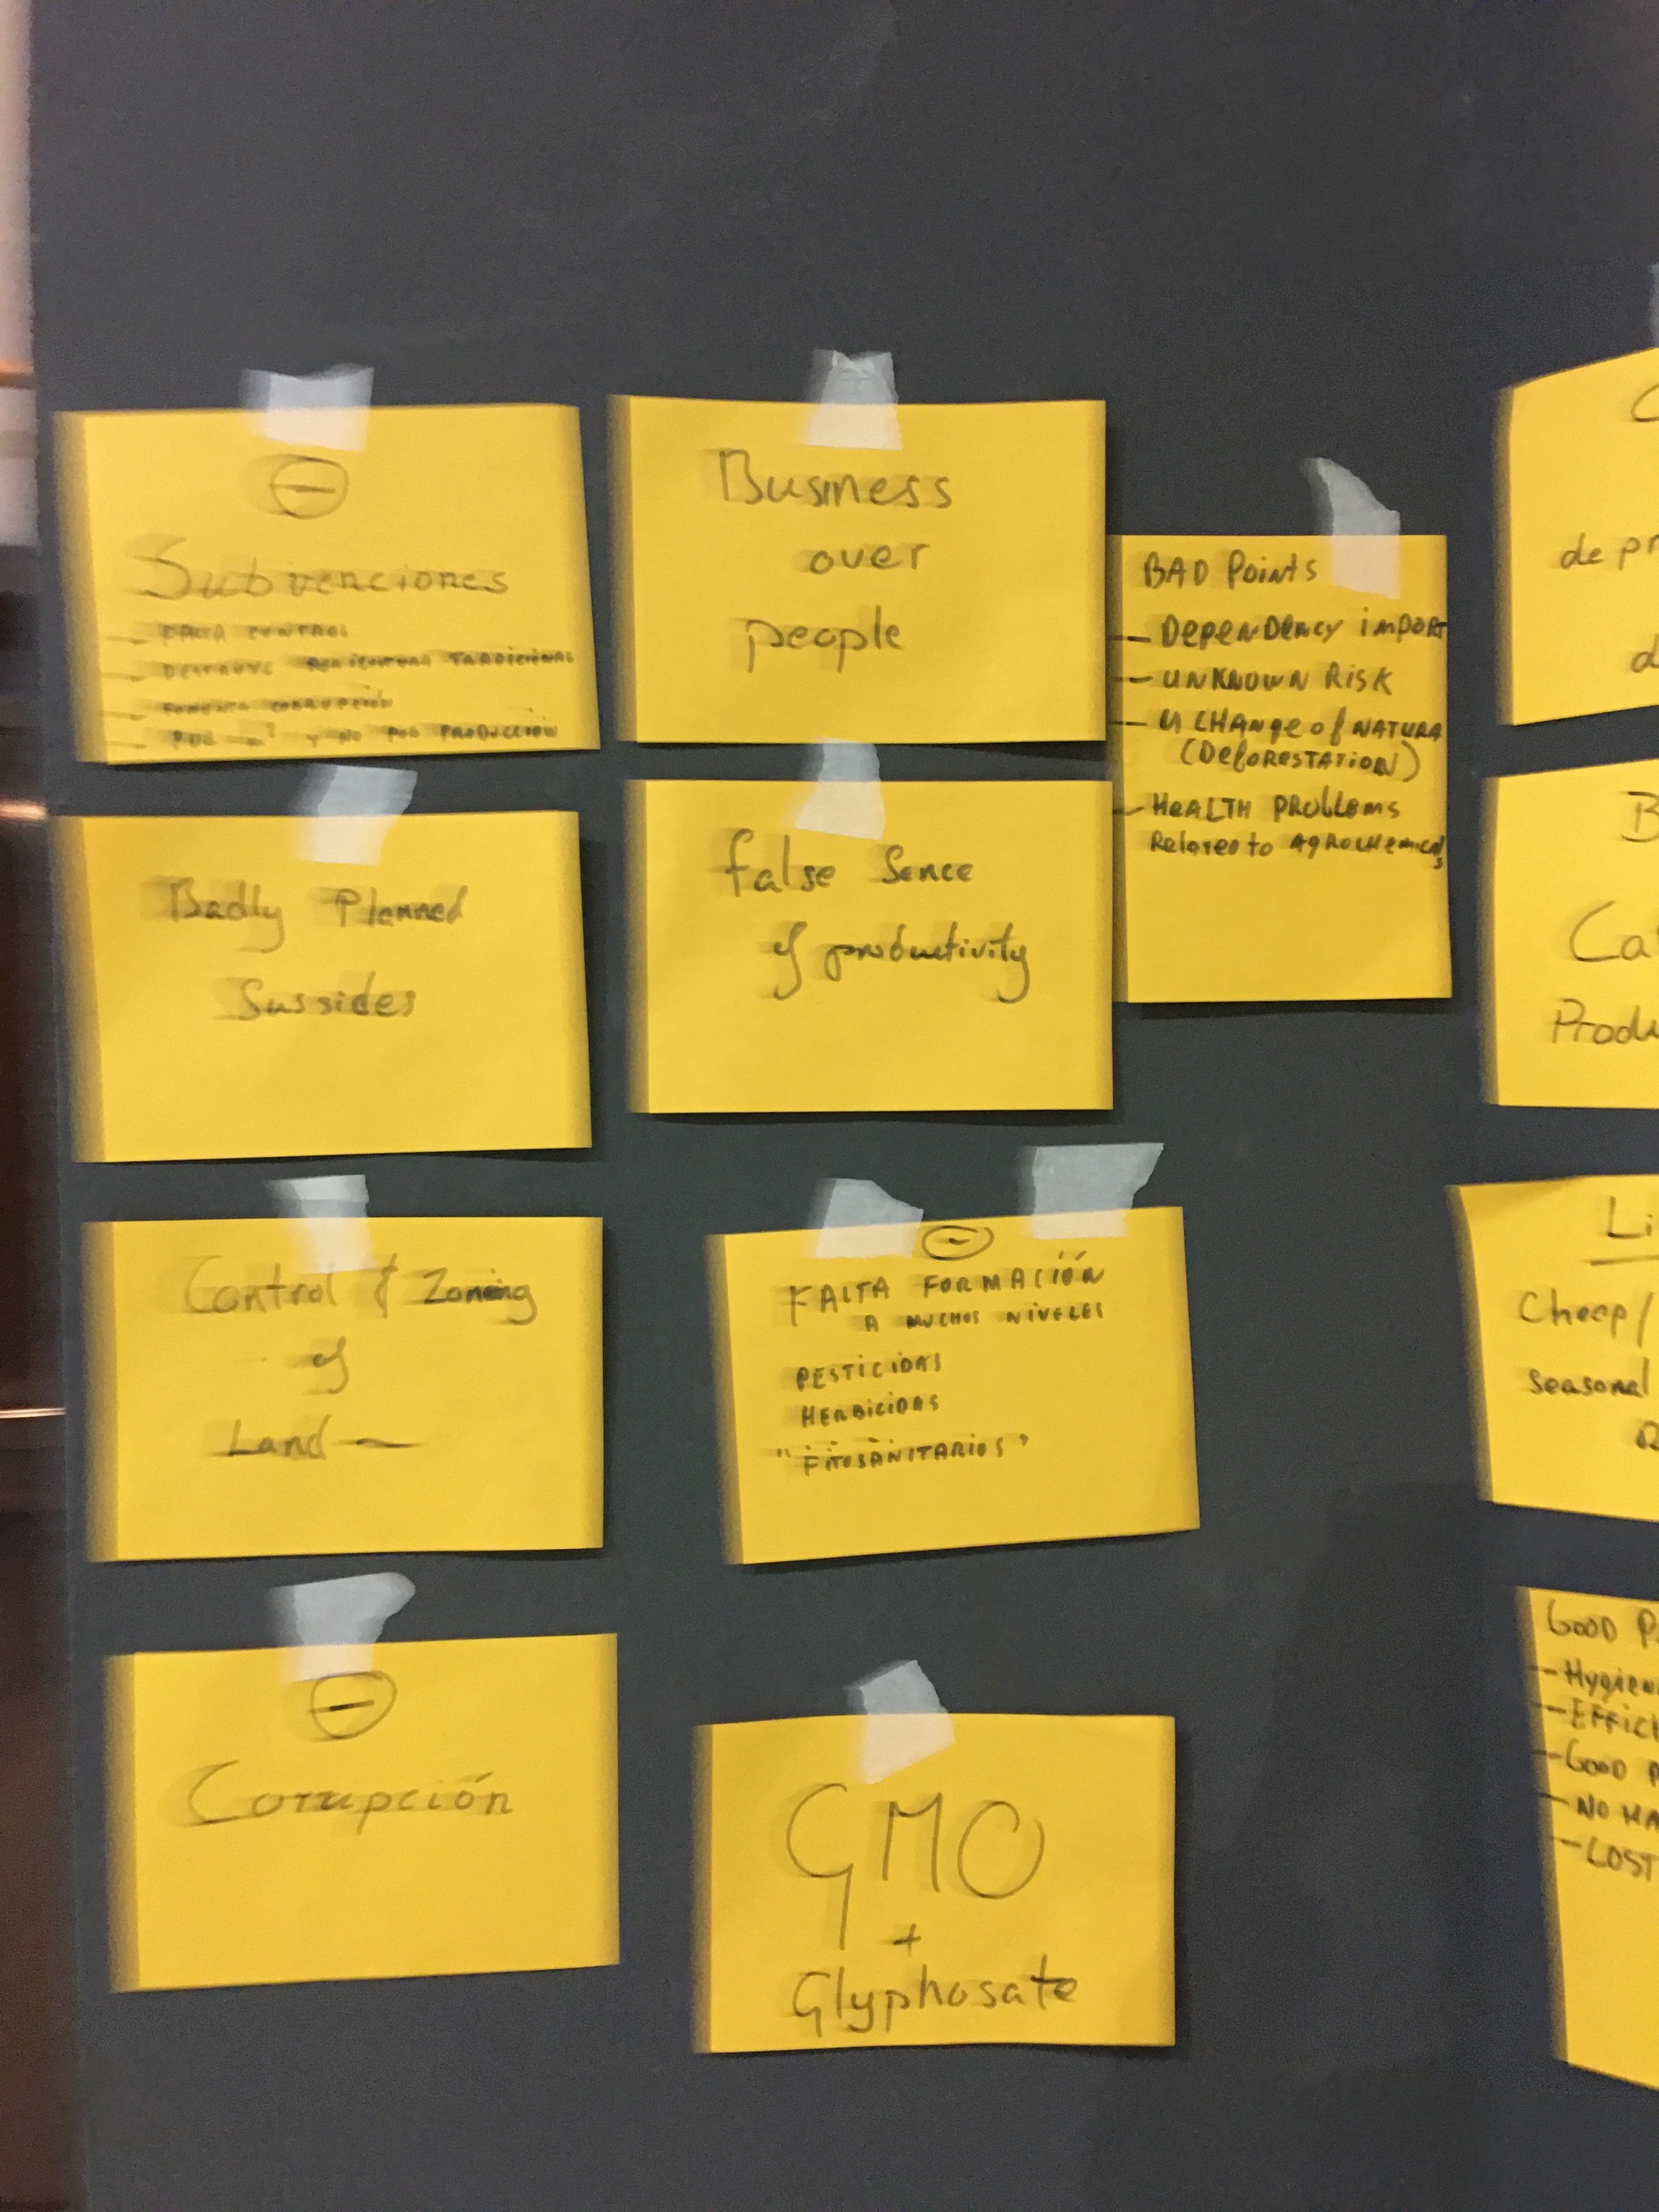 Subvenciones
- FALTA CONTROL
- DESTRUYE AGRICULTURA TRADICIONAL
- FOMENTA CORRUPCIÓN
- POR m² y NO POR PRODUCCIÓN
Business
over
people
BAD Points
- DepenDency import
- UNKNOWN Risk
- CHAnge of NATURA
(DeforestATion)
- HeALTH PRoblems
Related to AgRocHemicals
Badly Planned
Sussides
false Sence
of productivity
Control & Zoning
of
Land -
FALTA FORMACIÓN
A MUCHOS NIVELES
PESTICIDAS
HERBICIDAS
"FITOSANITARIOS"
Corrupción
GMO
+
Glyphosate
de pr
d
B
Ca
Produ
Li
Cheap/
seasonal
R
Good P
- Hygien
- EFFici
- Good P
- NO HA
- LOST